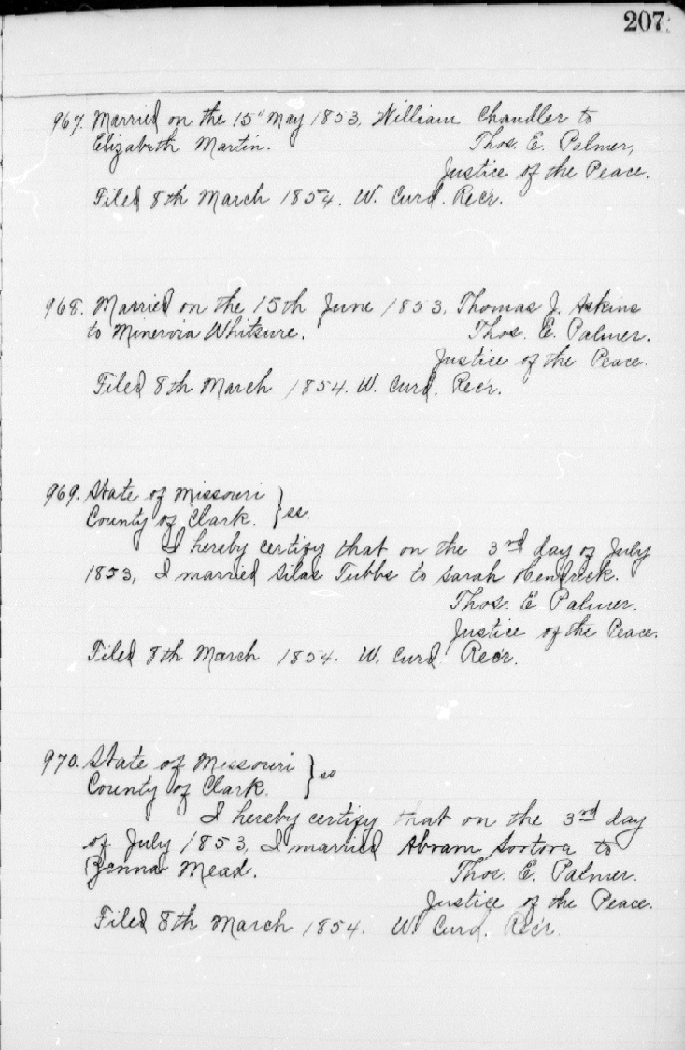 207.
967. Married on the 15" May 1853, William Chandler to
Elizabeth Martin. Thos. E. Palmer,
Justice of the Peace.
Filed 8th March 1854. W. Curd. Rec'r.
968. Married on the 15th June 1853, Thomas J. Askins
to Minervia Whitsure. Thos. E. Palmer.
Justice of the Peace.
Filed 8th March 1854. W. Curd. Rec'r.
969. State of Missouri
County of Clark. } ss
I hereby certify that on the 3rd day of July
1853, I married Silas Tubbs to Sarah Hendrick.
Thos. E Palmer.
Justice of the Peace.
Filed 8th March 1854. W. Curd Rec'r.
970. State of Missouri
County of Clark. } ss
I hereby certify that on the 3rd day
of July 1853, I married Abram to
Mead. Thos. E. Palmer.
Justice of the Peace.
Filed 8th March 1854. W. Curd. Rec'r